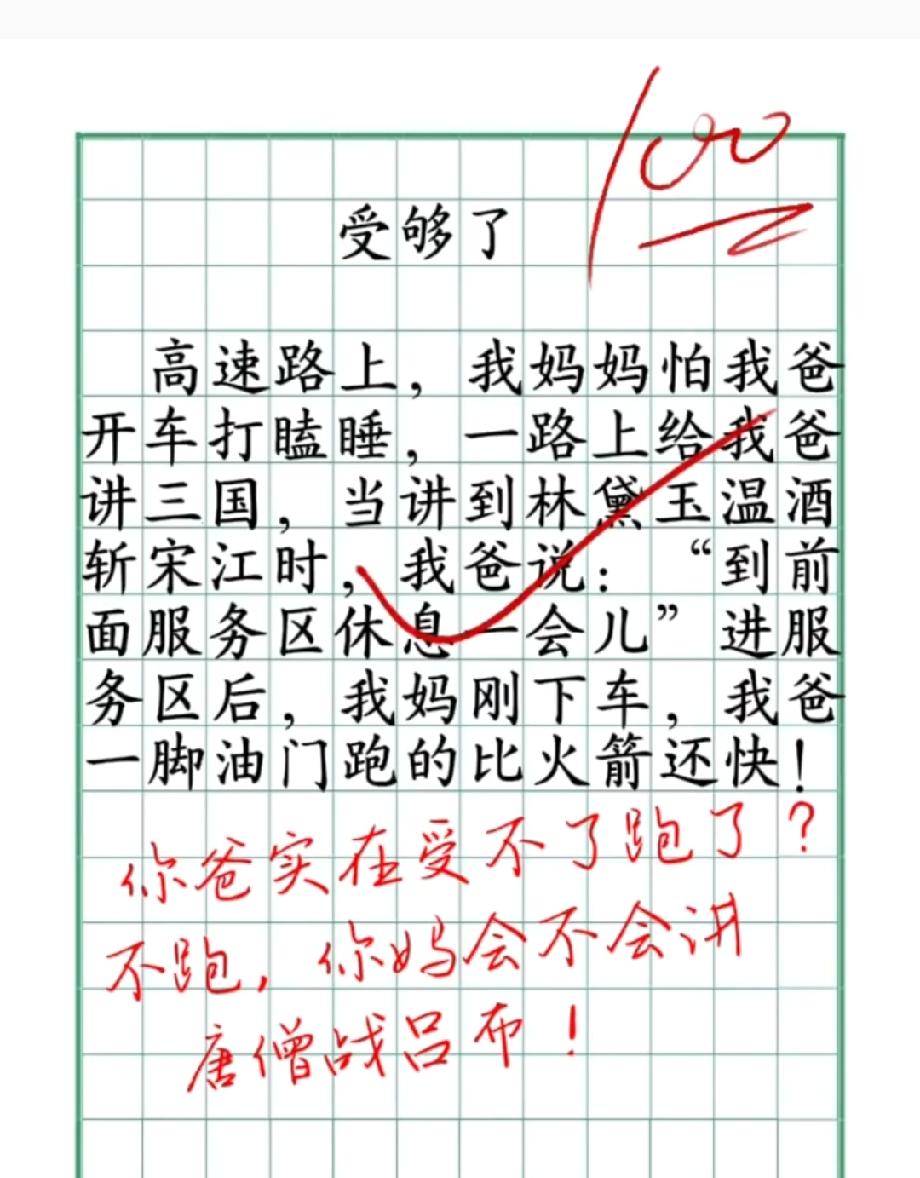 100
受够了
高速路上，我妈妈怕我爸
开车打瞌睡，一路上给我爸
讲三国，当讲到林黛玉温酒
斩宋江时，我爸说：“到前
面服务区休息一会儿”进服
务区后，我妈刚下车，我爸
一脚油门跑的比火箭还快！
你爸实在受不了跑了？
不跑，你妈会不会讲
唐僧战吕布！